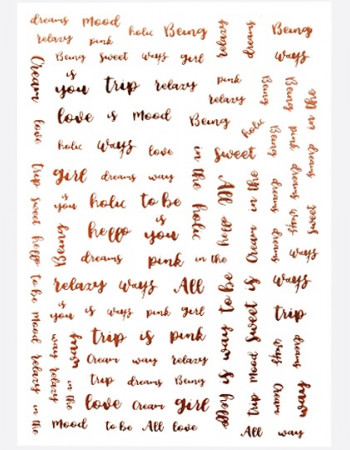 dreams Mood holic Being
relaxy pink
Being sweet ways girl
relaxy
dreams
Being
ways
Cream
is
you trip relaxy pink
relaxy
Being
Being
love is Mood Being
love
holic ways love
in the holic
sweet
holic
girl dreams way
All
is
you holic to be
trip sweet hello to be Mood relaxy in the
Being
hello is
you
hello
Cream in the
dreams pink in the
relaxy ways All
ways
is
you is ways pink girl
trip is pink
trip
Cream way relaxy
way relaxy
in the
trip dreams Being
love Cream girl
hello is way to be
trip Mood sweet is
dreams
Cream
way
Mood to be All love
All way